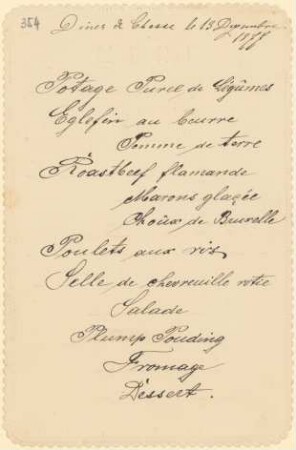 354
Diner de Chasse le 13 Decembre
1877
Potage Puree de légûmes
Eglefin au beurre
Pomme de terre
Roastbeef flamande
Marons glaçée
Choüx de Bruxelle
Poulets aux ris
Selle de chevreuille rotie
Salade
Plump Pouding
Fromage
Dessert.